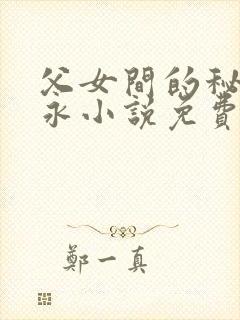 父女間的秘
永小説免費
鄭一真